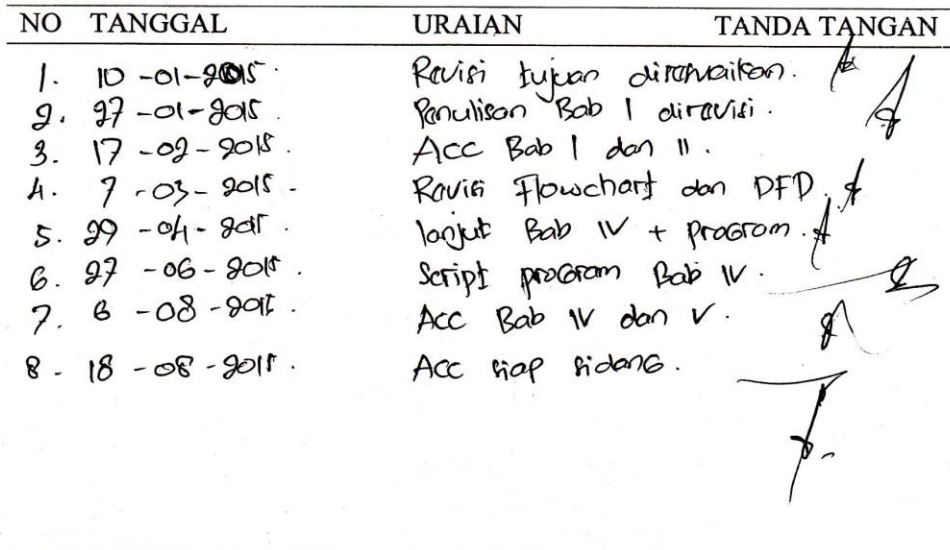 NO TANGGAL URAIAN TANDA TANGAN
1. 10 -01-2015 Revisi tujuan disesuaikan.
2. 27 -01-2015 Penulisan Bab I direvisi.
3. 17 -02-2015. Acc Bab I dan II.
4. 7 -03-2015 - Revisi Flowchart dan DFD.
5. 29 -04-2015. lanjut Bab IV + proGram.
6. 27 -06-2015. Script proGram Bab IV.
7. 6 -08-2015. Acc Bab IV dan V.
8 - 18 -08-2015. Acc siap sidanG.